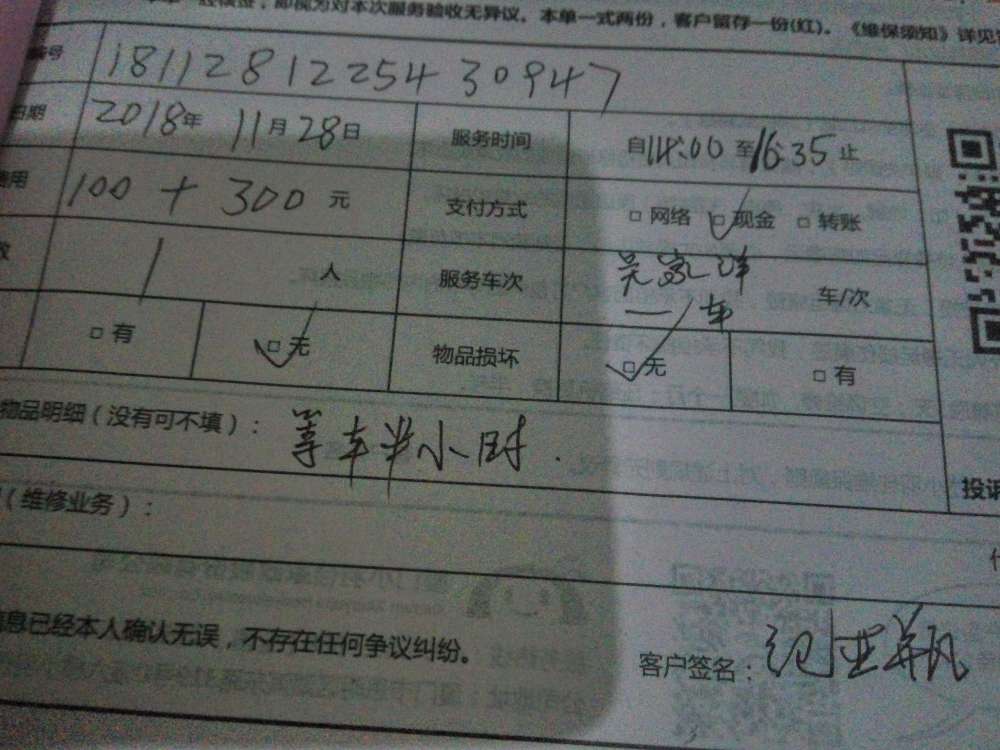 即视为对本次服务验收无异议。本单一式两份，客户留存一份(红)。《维保须知》详见
编号 181128122544 30947
日期 2018年 11月28日 服务时间 自14:00至16:35止
费用 100 + 300 元 支付方式 □网络 □现金 □转账
数 1 人 服务车次 吴家洋 一车 车/次
□有 □无 物品损坏 □无 □有
物品明细（没有可不填）： 等车半小时.
投诉
（维修业务）：
信息已经本人确认无误，不存在任何争议纠纷。
客户签名：